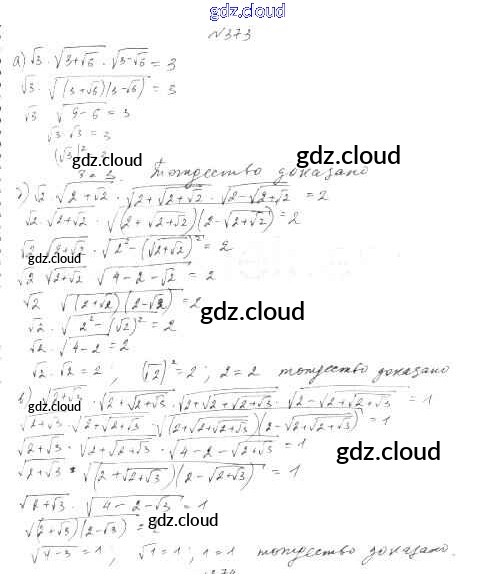 gdz.cloud
№373
gdz.cloud
а) √3 · √(3+√6) · √(3-√6) = 3
√3 · √((3+√6)(3-√6)) = 3
√3 √(9-6) = 3
√3·√3 = 3
(√3)²
3 = 3. Тождество доказано
gdz.cloud
√2 · √(2+√2) · √(2+√(2+√2)) · √(2-√(2+√2)) = 2
√2·√(2+√2) · √((2+√(2+√2))(2-√(2+√2))) = 2
√2 √(2+√2) · √(2²-(√(2+√2))²) = 2
gdz.cloud
√2 √(2+√2) √(4-2-√2) = 2
√2 √((2+√2)(2-√2)) = 2
√2 · √(2²-(√2)²) = 2
gdz.cloud
√2 · √(4-2) = 2
√2·√2 = 2; (√2)² = 2; 2=2 тождество доказано
в) √(2+√3) · √(2+√(2+√3)) · √(2+√(2+√(2+√3))) · √(2-√(2+√(2+√3))) = 1
gdz.cloud
√(2+√3) · √(2+√(2+√3)) · √((2+√(2+√(2+√3)))(2-√(2+√(2+√3)))) = 1
√(2+√3) · √(2+√(2+√3)) · √(4-2-√(2+√3)) = 1
gdz.cloud
√(2+√3) · √((2+√(2+√3))(2-√(2+√3))) = 1
gdz.cloud
√(2+√3) · √(4-2-√3) = 1
√((2+√3)(2-√3))
gdz.cloud
√(4-3) = 1; √1 = 1; 1=1 тождество доказано.